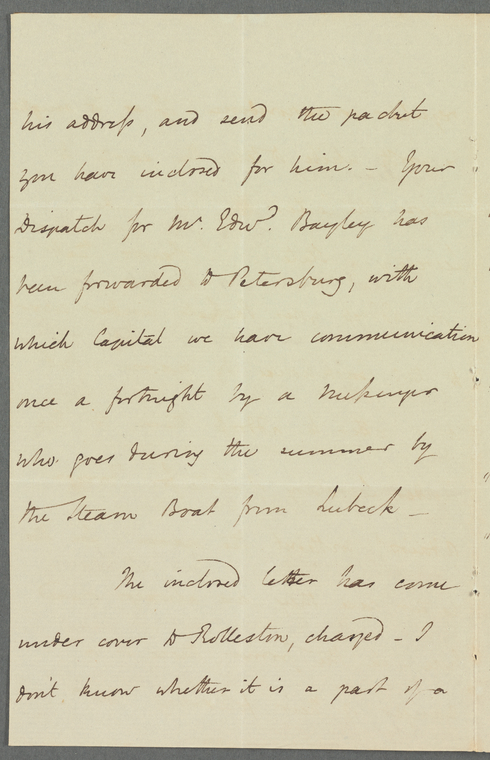 his address, and send the packet
you have inclosed for him. – Your
Dispatch for Mr. Edwd. Bayley has
been forwarded to Petersburg, with
which Capital we have communication
once a fortnight by a
who goes during the summer by
the Steam Boat from Lubeck –
The inclosed letter has come
under cover to Rolleston, charged – I
don't know whether it is a part of a